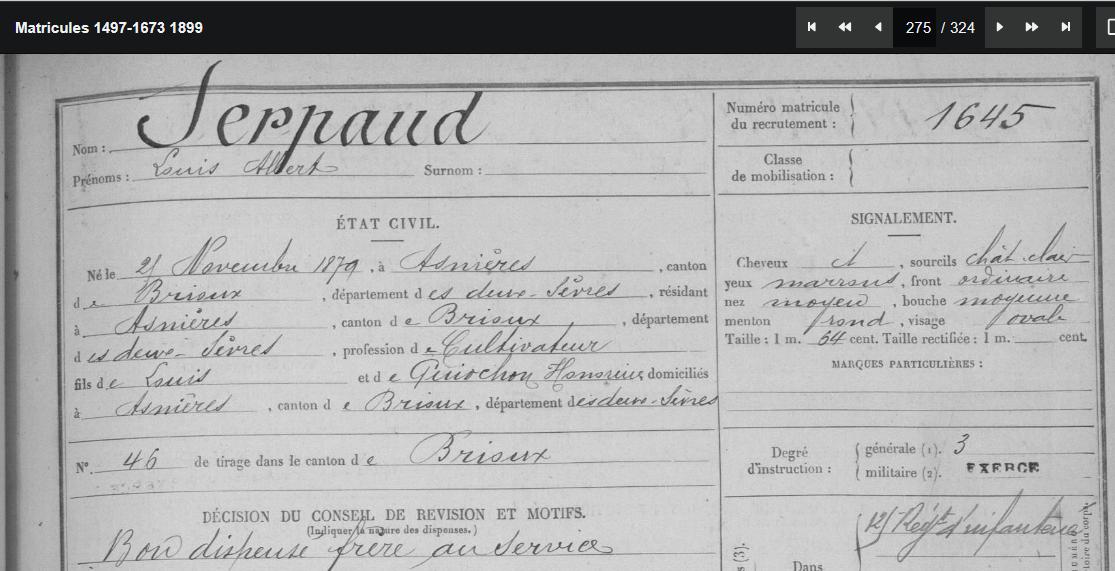 Matricules 1497-1673 1899
275 / 324
Serpaud
Nom :
Prénoms : Louis Albert Surnom :
Numéro matricule
du recrutement : 1645
Classe
de mobilisation :
ÉTAT CIVIL.
Né le 21 Novembre 1879, à Asnières, canton
de Brioux, département des deux-Sèvres, résidant
à Asnières, canton de Brioux, département
des deux-Sèvres, profession de Cultivateur
fils de Louis et de Guiochon Honorine domiciliés
à Asnières, canton de Brioux, département des deux-Sèvres
N° 46 de tirage dans le canton de Brioux
SIGNALEMENT.
Cheveux ct, sourcils chât. clair
yeux marrons, front ordinaire
nez moyen, bouche moyenne
menton rond, visage ovale
Taille : 1 m. 64 cent. Taille rectifiée : 1 m. cent.
MARQUES PARTICULIÈRES :
Degré
d'instruction :
générale (1). 3
militaire (2). EXERCÉ
DÉCISION DU CONSEIL DE REVISION ET MOTIFS.
(Indiquer la nature des dispenses.)
Bon dispense frère au service
Régt d'infanterie
Dans